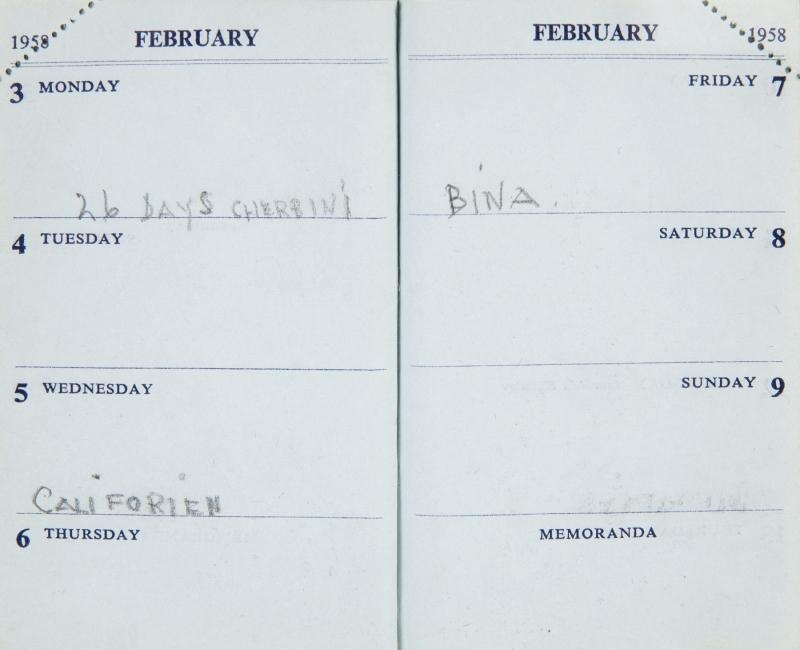 1958 FEBRUARY
3 MONDAY
26 DAYS CHERBINI
4 TUESDAY
5 WEDNESDAY
CALIFORIEN
6 THURSDAY
FEBRUARY 1958
FRIDAY 7
BINA.
SATURDAY 8
SUNDAY 9
MEMORANDA